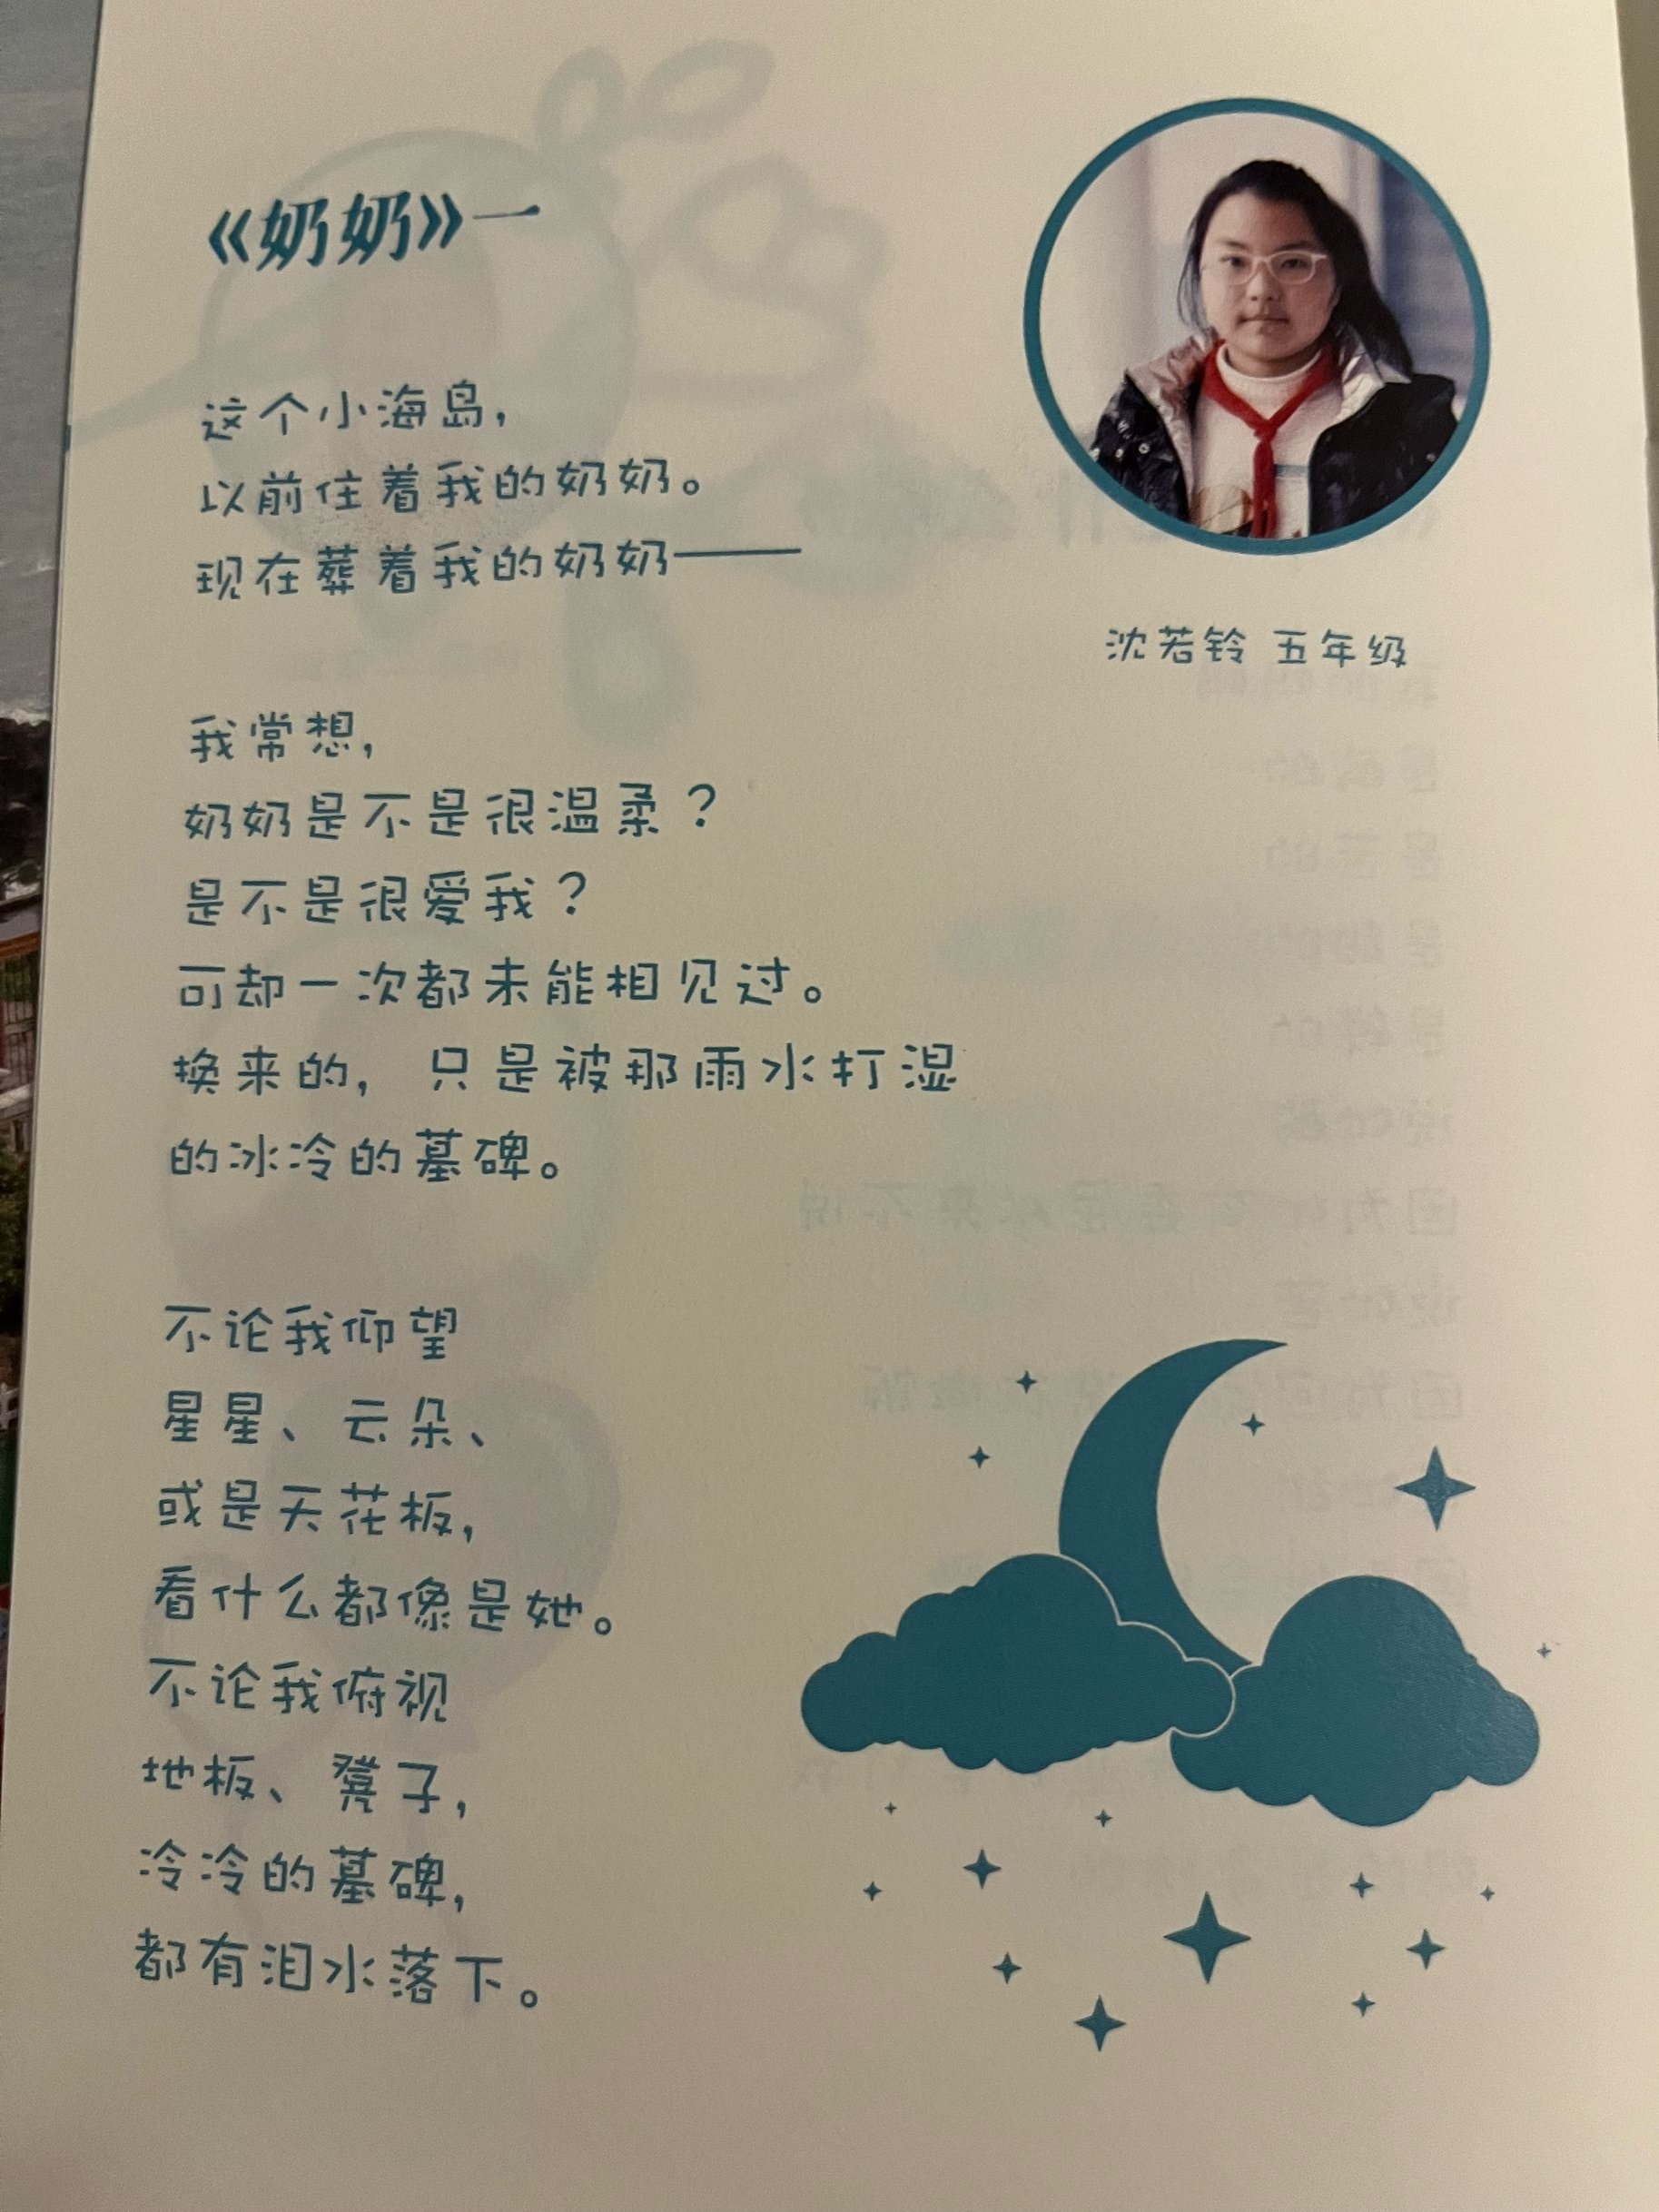 《奶奶》一
这个小海岛，
以前住着我的奶奶。
现在葬着我的奶奶——
沈若铃 五年级
我常想，
奶奶是不是很温柔？
是不是很爱我？
可却一次都未能相见过。
换来的，只是被那雨水打湿
的冰冷的墓碑。
不论我仰望
星星、云朵、
或是天花板，
看什么都像是她。
不论我俯视
地板、凳子，
冷冷的墓碑，
都有泪水落下。